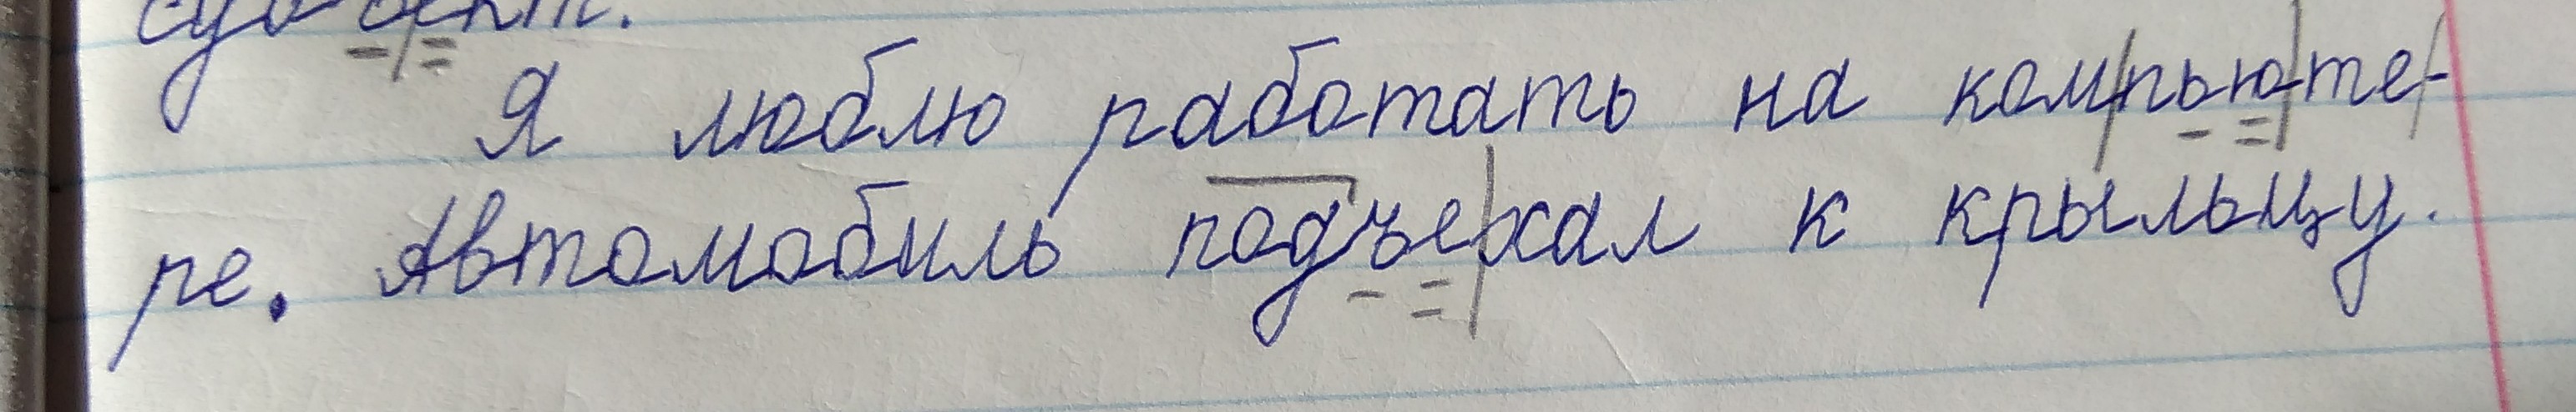 субъект.
Я люблю работать на компьюте-
ре. Автомобиль подъехал к крыльцу.